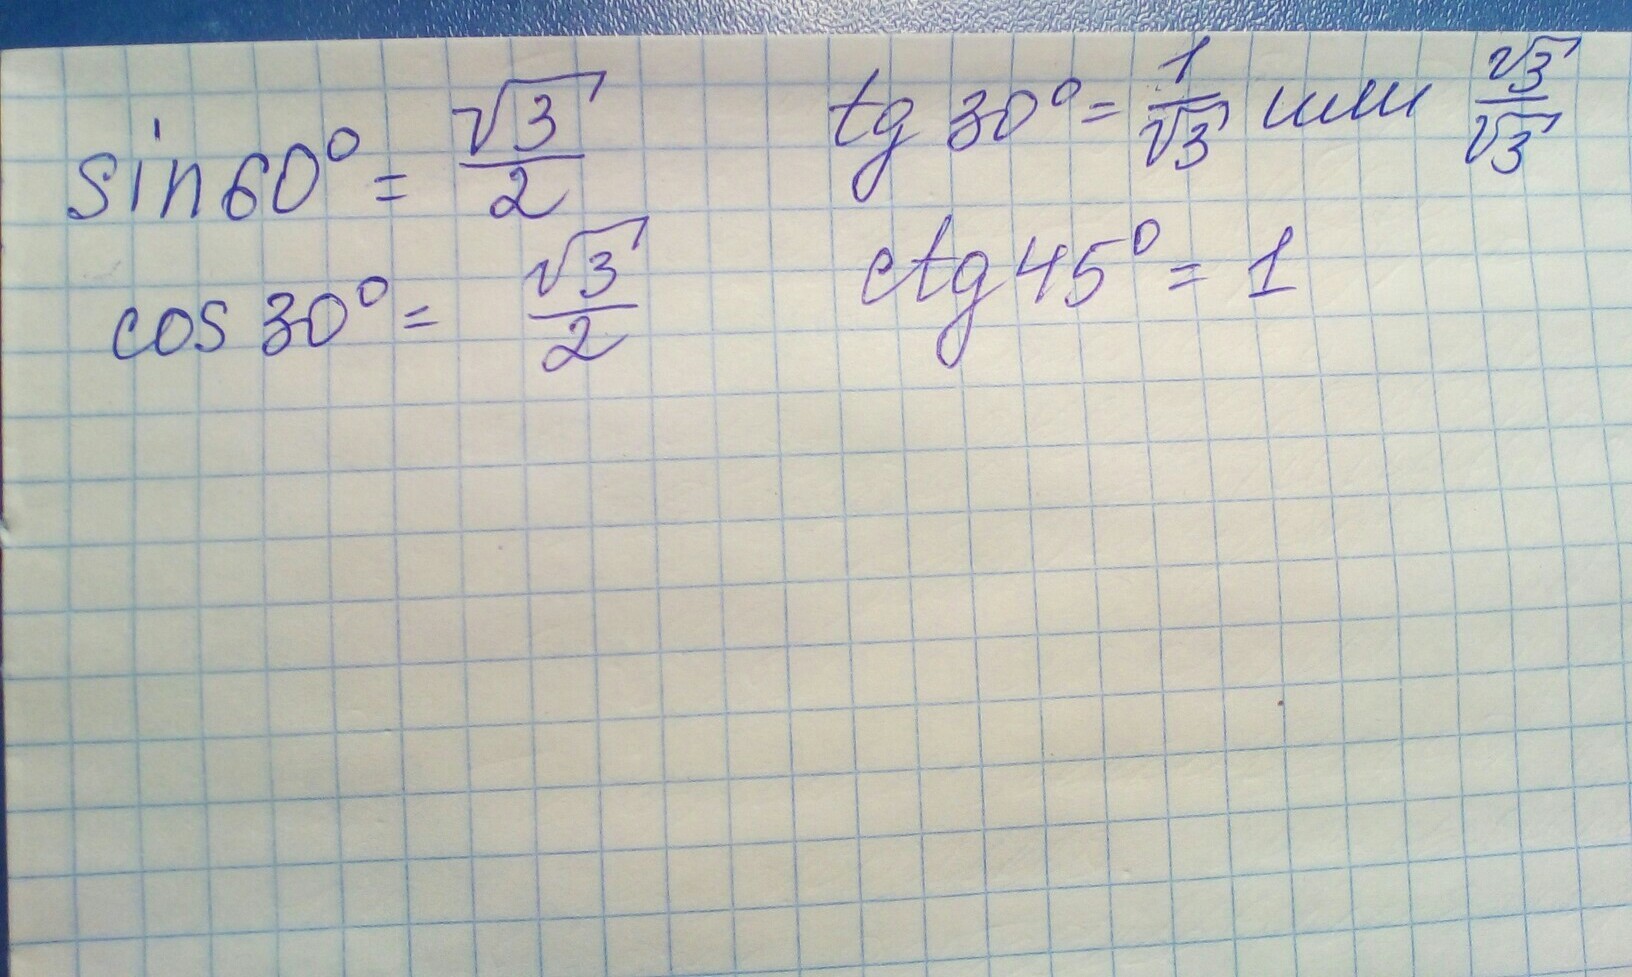 sin 60° = √3/2
cos 30° = √3/2
tg 30° = 1/√3 или √3/√3
ctg 45° = 1